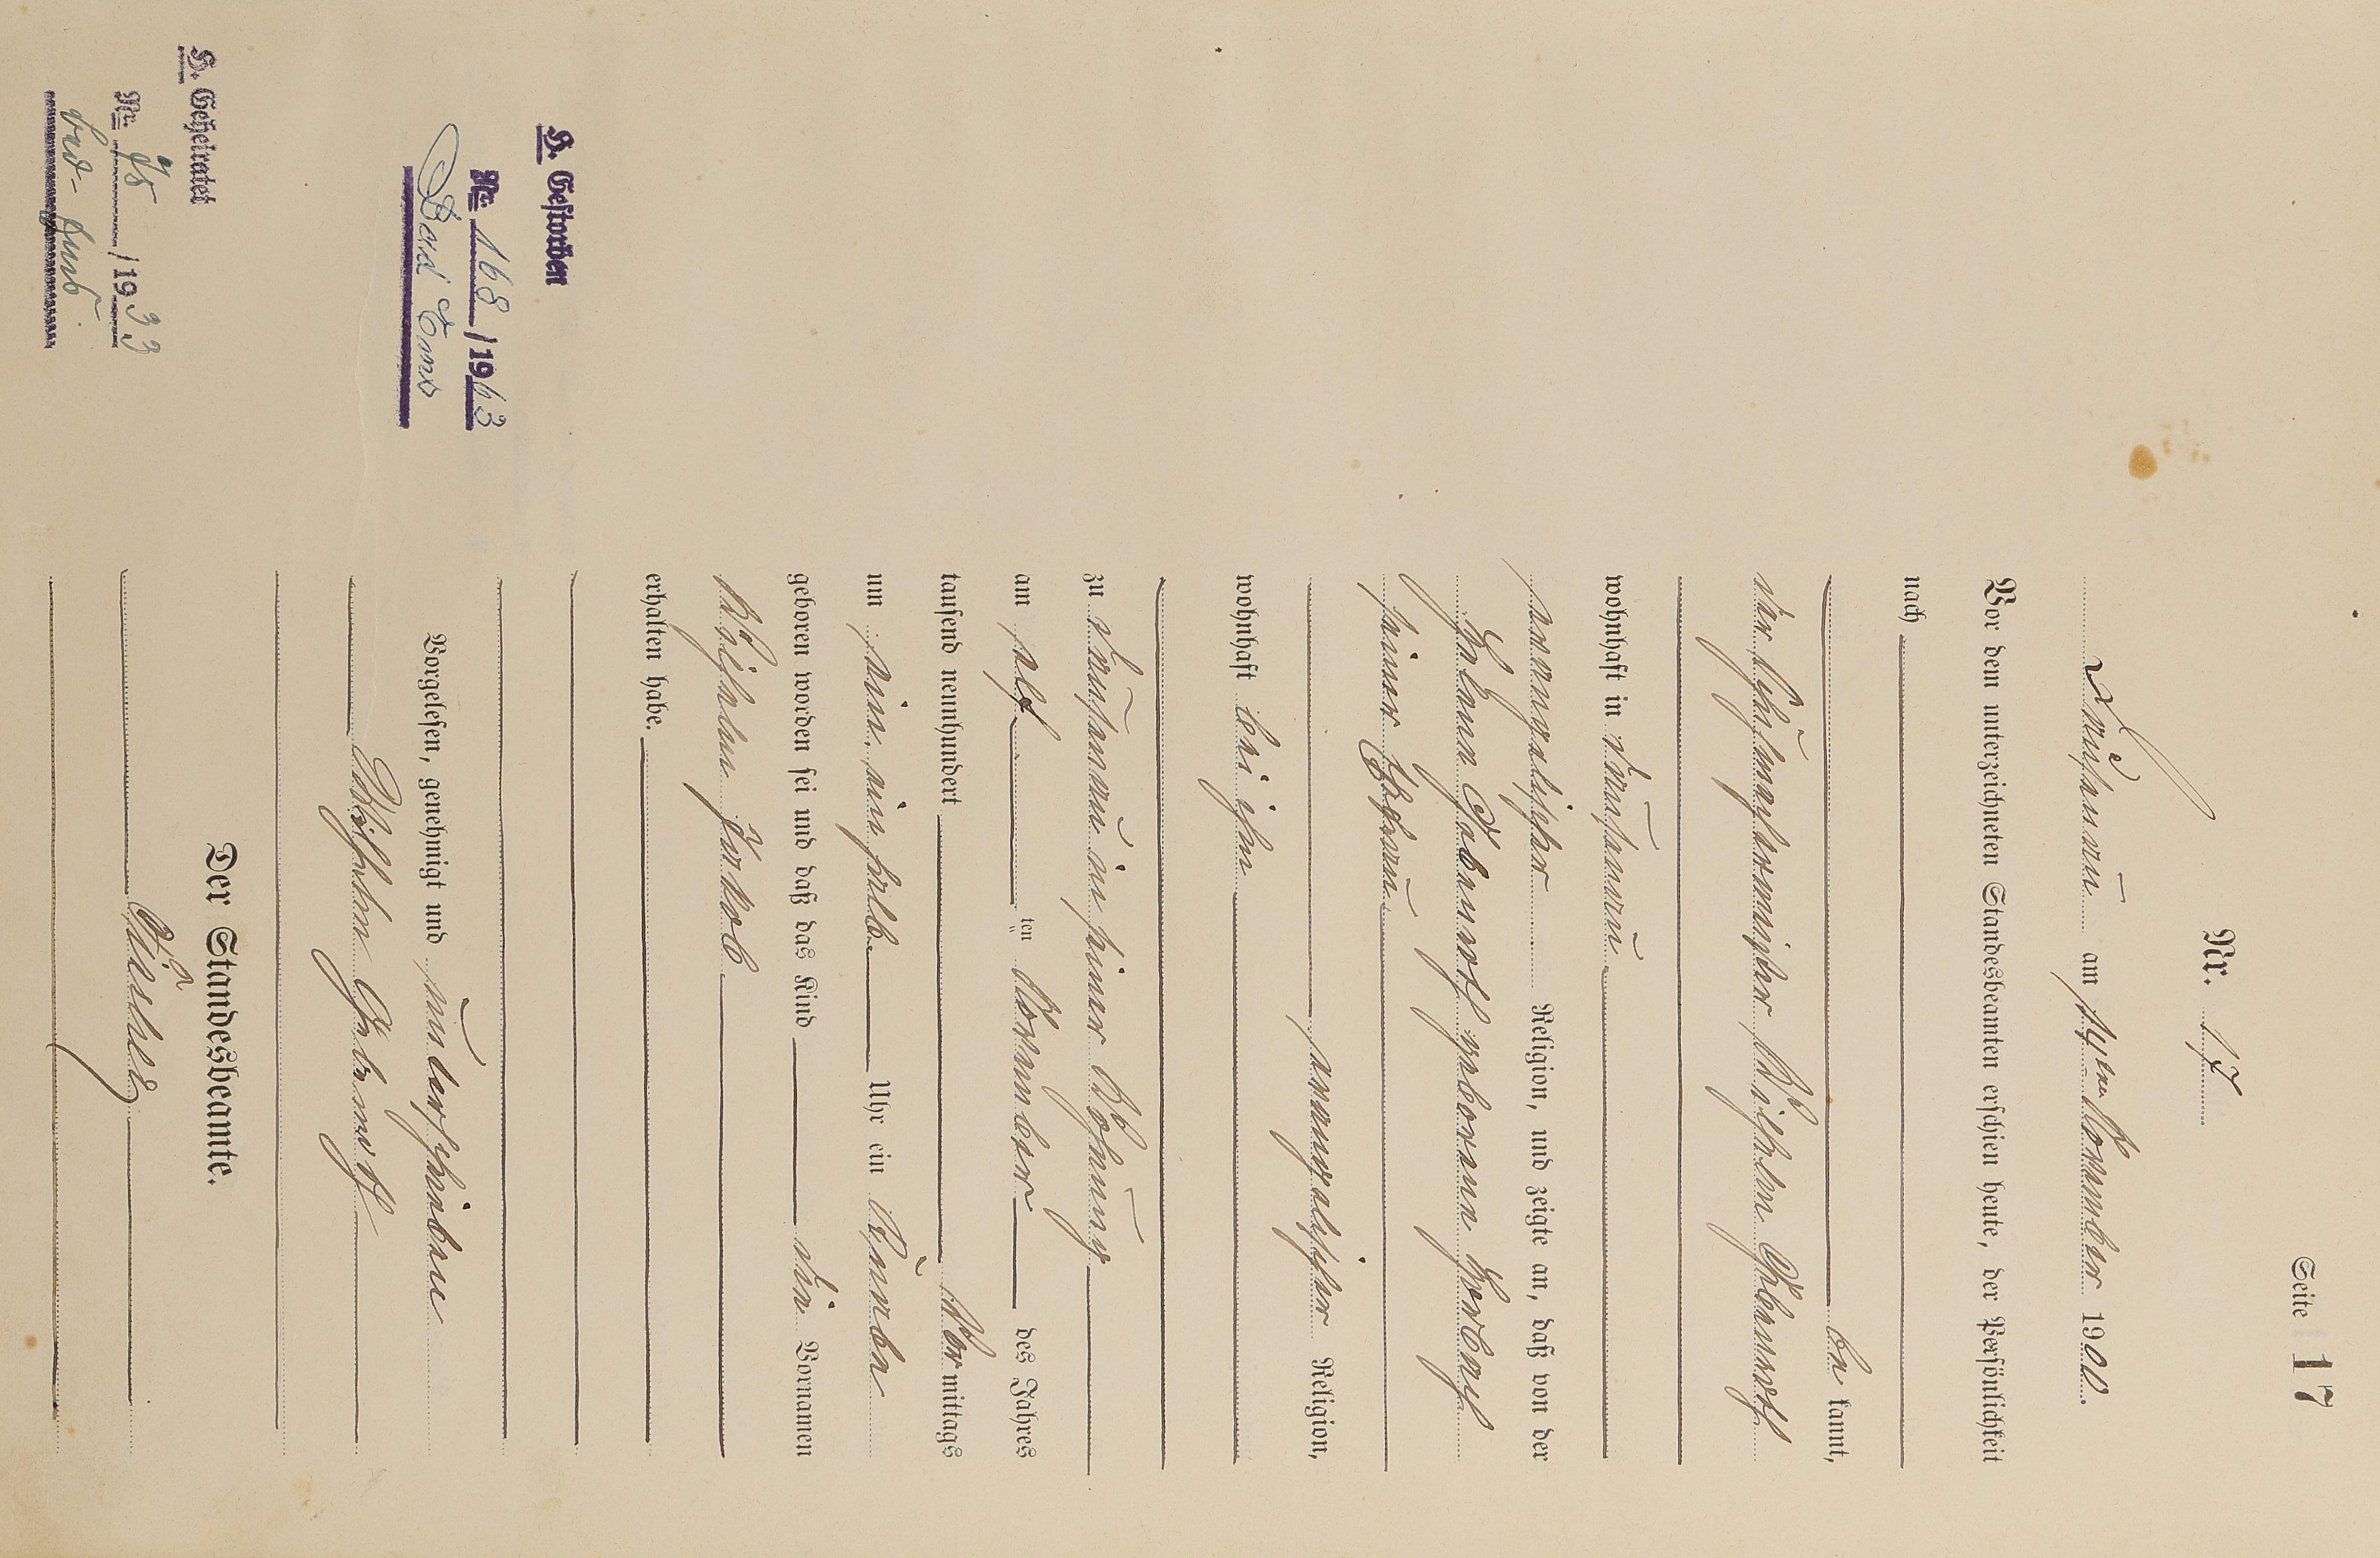 Seite 17
Nr. 17
Dausenau am 14ten November 1900.
Vor dem unterzeichneten Standesbeamten erschien heute, der Persönlichkeit
nach
be kannt,
der Wilhelm
wohnhaft in Dausenau
evangelischer Religion, und zeigte an, daß von der
geborene
seiner Ehefrau
evangelischer Religion,
wohnhaft bei ihm
zu Dausenau in seiner Wohnung
am elf ten November des Jahres
tausend neunhundert Vor mittags
um ein ein halb Uhr ein Knabe
geboren worden sei und daß das Kind die Vornamen
Wilhelm Jakob
erhalten habe.
Vorgelesen, genehmigt und unterschrieben
Wilhelm
Der Standesbeamte.
H. Gestorben
Nr. 168/1963
Bad Ems
H. Geheiratet
Nr. /1933
Bad-Ems